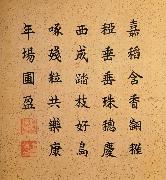 嘉稻含香翻䆉
稏垂垂珠穗慶
西成踏枝好鳥
啄殘粒共樂康
年場圃盈